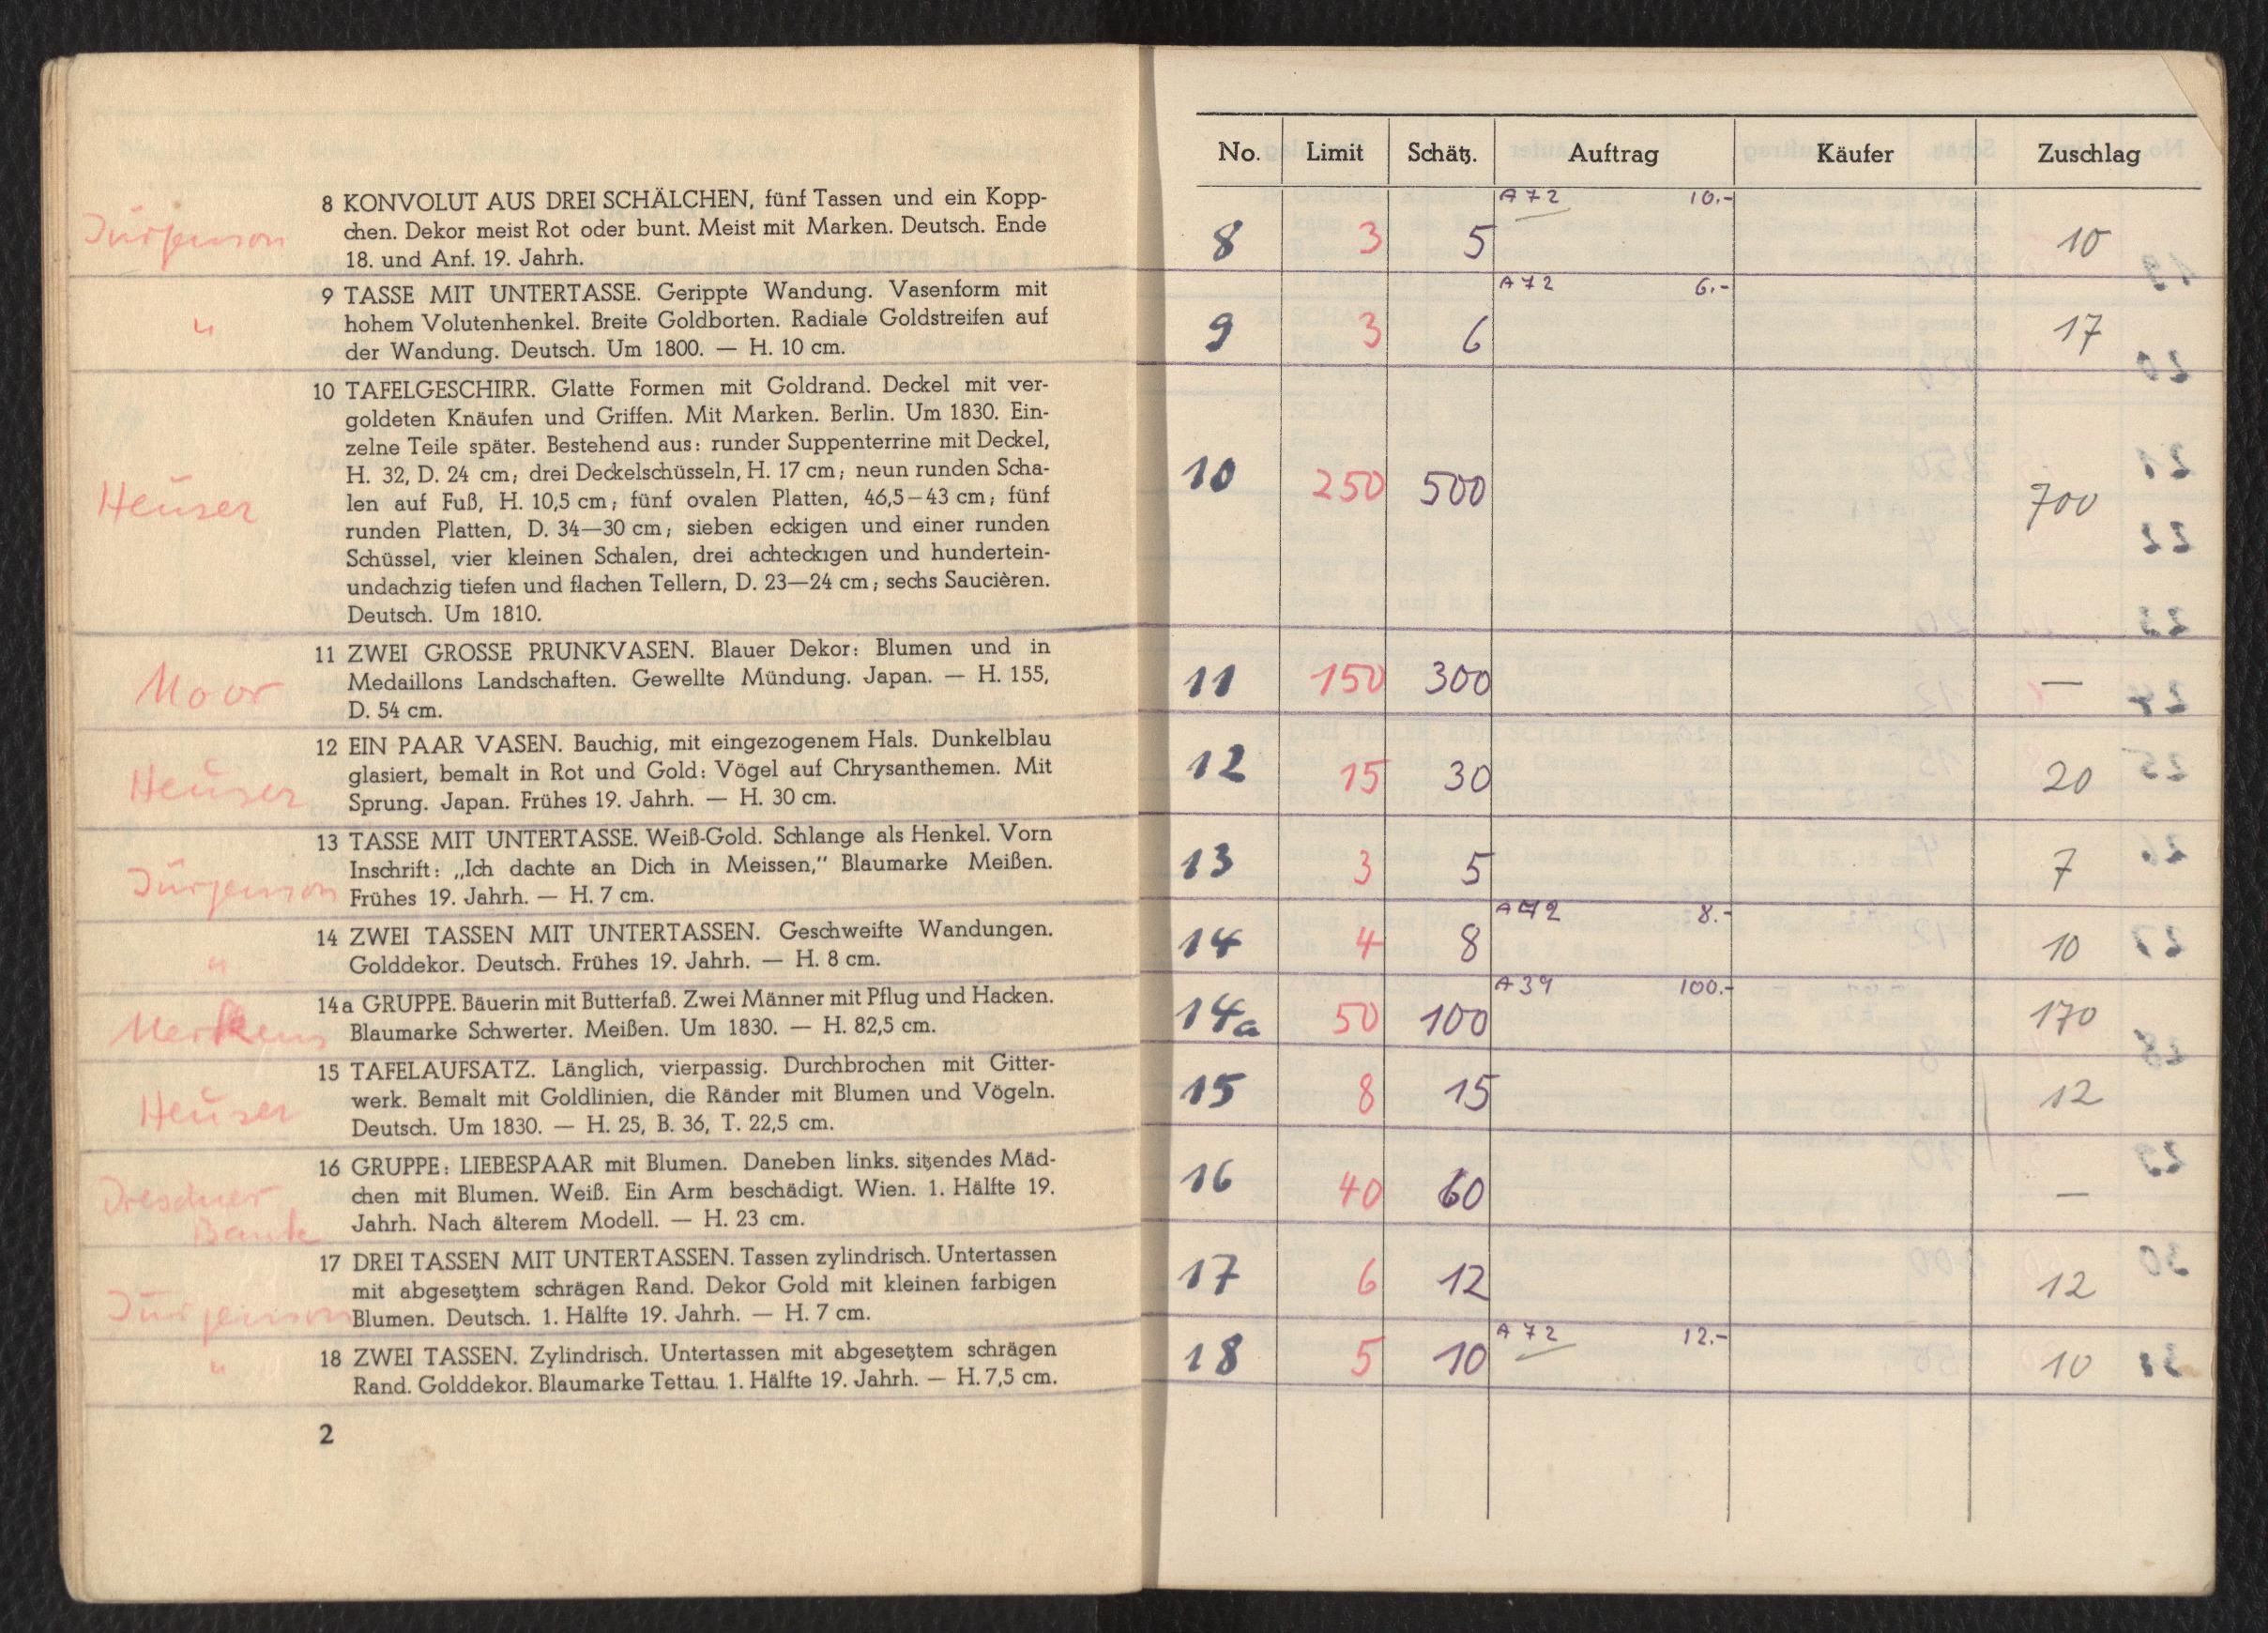 Jürgenson
8 KONVOLUT AUS DREI SCHÄLCHEN, fünf Tassen und ein Kopp-
chen. Dekor meist Rot oder bunt. Meist mit Marken. Deutsch. Ende
18. und Anf. 19. Jahrh.
"
9 TASSE MIT UNTERTASSE. Gerippte Wandung. Vasenform mit
hohem Volutenhenkel. Breite Goldborten. Radiale Goldstreifen auf
der Wandung. Deutsch. Um 1800. — H. 10 cm.
Heuser
10 TAFELGESCHIRR. Glatte Formen mit Goldrand. Deckel mit ver-
goldeten Knäufen und Griffen. Mit Marken. Berlin. Um 1830. Ein-
zelne Teile später. Bestehend aus: runder Suppenterrine mit Deckel,
H. 32, D. 24 cm; drei Deckelschüsseln, H. 17 cm; neun runden Scha-
len auf Fuß, H. 10,5 cm; fünf ovalen Platten, 46,5–43 cm; fünf
runden Platten, D. 34—30 cm; sieben eckigen und einer runden
Schüssel, vier kleinen Schalen, drei achteckigen und hundertein-
undachzig tiefen und flachen Tellern, D. 23—24 cm; sechs Saucièren.
Deutsch. Um 1810.
Moor
11 ZWEI GROSSE PRUNKVASEN. Blauer Dekor: Blumen und in
Medaillons Landschaften. Gewellte Mündung. Japan. — H. 155,
D. 54 cm.
Heuser
12 EIN PAAR VASEN. Bauchig, mit eingezogenem Hals. Dunkelblau
glasiert, bemalt in Rot und Gold: Vögel auf Chrysanthemen. Mit
Sprung. Japan. Frühes 19. Jahrh. — H. 30 cm.
Jürgenson
13 TASSE MIT UNTERTASSE. Weiß-Gold. Schlange als Henkel. Vorn
Inschrift: „Ich dachte an Dich in Meissen,“ Blaumarke Meißen.
Frühes 19. Jahrh. — H. 7 cm.
"
14 ZWEI TASSEN MIT UNTERTASSEN. Geschweifte Wandungen.
Golddekor. Deutsch. Frühes 19. Jahrh. — H. 8 cm.
Merkens
14a GRUPPE. Bäuerin mit Butterfaß. Zwei Männer mit Pflug und Hacken.
Blaumarke Schwerter. Meißen. Um 1830. — H. 82,5 cm.
Heuser
15 TAFELAUFSATZ. Länglich, vierpassig. Durchbrochen mit Gitter-
werk. Bemalt mit Goldlinien, die Ränder mit Blumen und Vögeln.
Deutsch. Um 1830. — H. 25, B. 36, T. 22,5 cm.
Dresdner
Bank
16 GRUPPE: LIEBESPAAR mit Blumen. Daneben links. sitzendes Mäd-
chen mit Blumen. Weiß. Ein Arm beschädigt. Wien. 1. Hälfte 19.
Jahrh. Nach älterem Modell. — H. 23 cm.
Jürgenson
17 DREI TASSEN MIT UNTERTASSEN. Tassen zylindrisch. Untertassen
mit abgesetztem schrägen Rand. Dekor Gold mit kleinen farbigen
Blumen. Deutsch. 1. Hälfte 19. Jahrh. — H. 7 cm.
"
18 ZWEI TASSEN. Zylindrisch. Untertassen mit abgesetztem schrägen
Rand. Golddekor. Blaumarke Tettau. 1. Hälfte 19. Jahrh. — H. 7,5 cm.
2
No. Limit Schätz. Auftrag Käufer Zuschlag
8 3 5 A72 10.- 10
9 3 6 A72 6.- 17
10 250 500 700
11 150 300 —
12 15 30 20
13 3 5 7
14 4 8 A72 8.- 10
14a 50 100 A39 100.- 170
15 8 15 12
16 40 60 —
17 6 12 12
18 5 10 A72 12.- 10